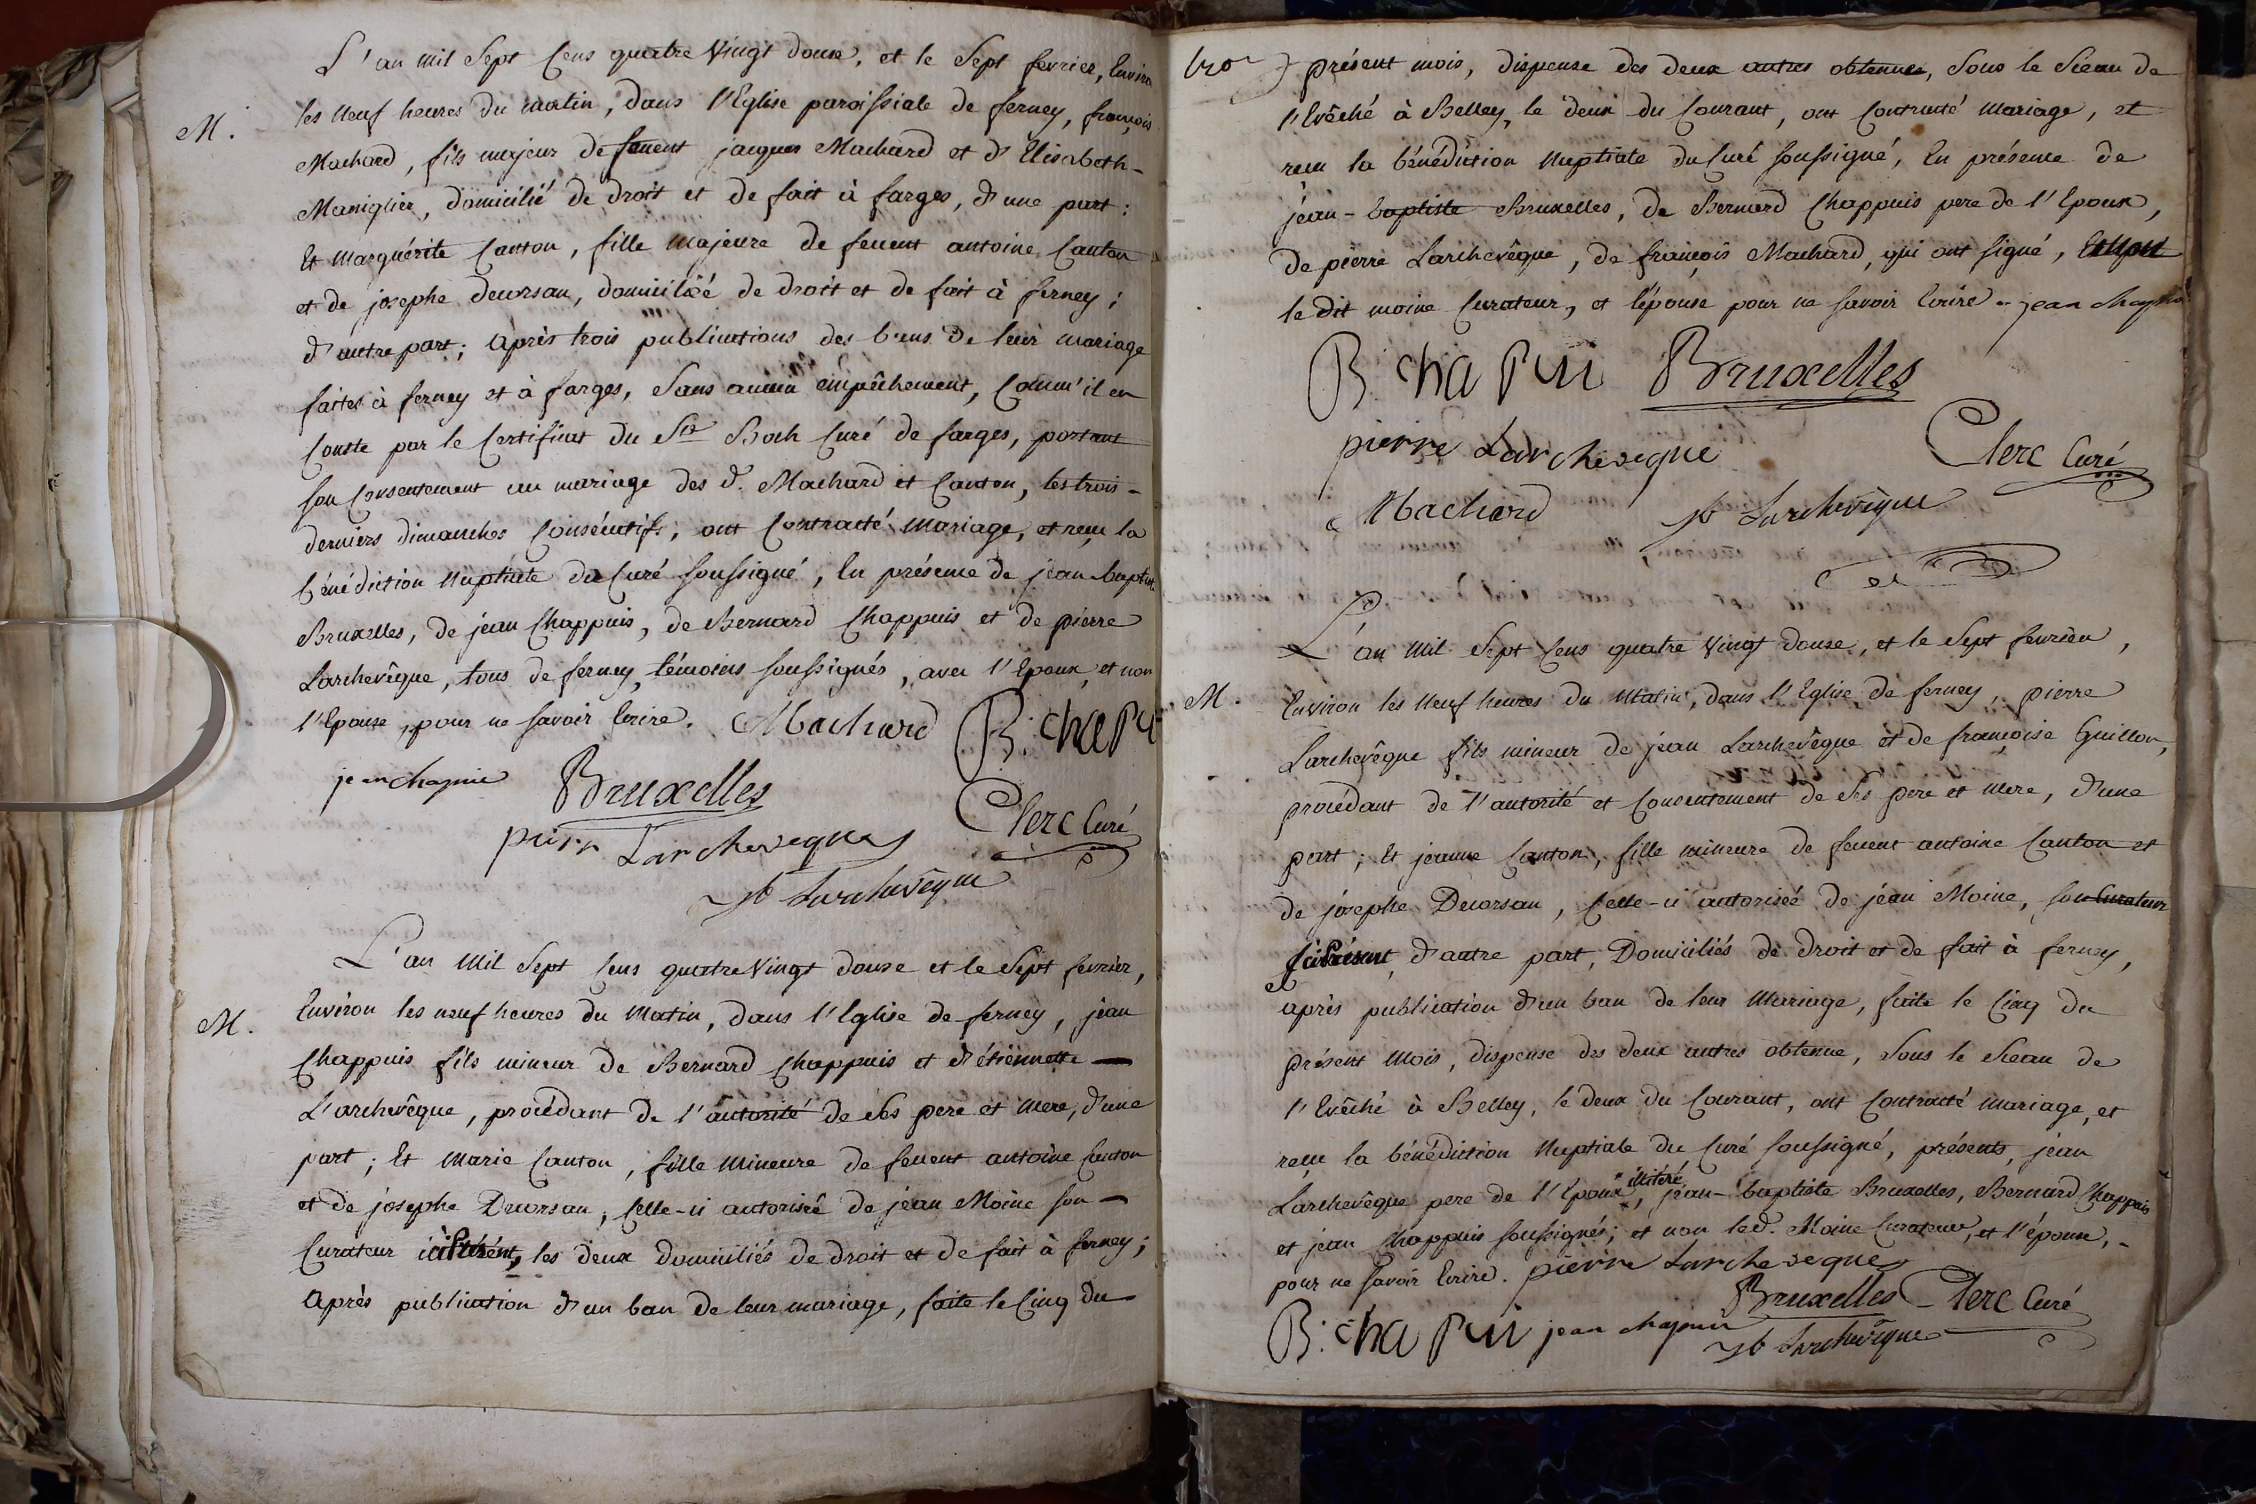 L'an mil Sept Cens quatre Vingt douse, et le Sept fevrier, Environ
les Neuf heures du matin, dans l'Eglise paroissiale de ferney, françois
M.
Machard, fils majeur de feuent jacques Machard et d'Elisabeth-
Maniglier, domicilié de droit et de fait à farges, d'une part:
Et Marguérite Canton, fille Majeure de feuent antoine Canton
et de josephe Decorsan, domiciliée de droit et de fait à ferney;
d'autre part; après trois publications des bans de leur mariage
faites à ferney et à farges, Sans aucun empêchement, Comm'il en
Conste par le Certificat du Sr Boch Curé de farges, portant
son Consentement au mariage des d. Machard et Canton, les trois-
derniers dimanches Consécutifs; ont Contracté Mariage, et reçu la
bénédiction Nuptiale du Curé soussigné, En présence de jean baptiste
Bruxelles, de jean Chappuis, de Bernard Chappuis et de pierre
Larchevêque, tous de ferney, témoins soussignés, avec l'Epoux, et non
l'Epouse, pour ne savoir Ecrire. Machard B: chapu
jean chapuie Bruxelles
pierr Larcheveque Clerc Curé
Larchevêque
L'an Mil Sept Cens quatre Vingt douse et le Sept fevrier,
M.
Environ les neuf heures du Matin, dans l'Eglise de ferney, jean
Chappuis fils mineur de Bernard Chappuis et d'étiënnette
L'archevêque, procédant de l'autorité de Ses pere et Mere, d'une
part; Et Marie Canton, fille Mineure de feuent antoine Canton
et de josephe Decorsan, Celle-ci autorisée de jean Moine son
Curateur ici Présent, les deux domiciliés de droit et de fait à ferney;
Après publication d'un ban de leur mariage, faite le Cinq du
présent mois, dispense des deux autres obtenue, Sous le Sceau de
l'Evêché à Belley, le deux du Courant, ont Contracté Mariage, et
recu la bénédiction Nuptiale du Curé soussigné, En présence de
jean-baptiste Bruxelles, de Bernard Chappuis pere de l'Epoux,
de pierre Larchevêque, de françois Machard, qui ont signé, Et Non
le dit moine Curateur, et l'épouse pour ne savoir Ecrire. jean chapuie
B: cha Pui Bruxelles
pierre Larcheveque Clerc Curé
Machard Larchevêque
L'an Mil Sept Cens quatre Vingt douse, et le Sept fevrier,
M.
Environ les Neuf heures du Matin, dans l'Eglise de ferney, pierre
Larchevêque fils mineur de jean Larchevêque et de françoise Guillon,
procédant de l'autorité et Consentement de Ses pere et Mere, d'une
part; Et jeanne Canton, fille mineure de feuent antoine Canton et
de josephe Decorsan, Celle-ci autorisée de jean Moine, son Curateur
ici Présent, d'autre part, Domiciliés de droit et de fait à ferney,
après publication d'un ban de leur Mariage, faite le Cinq du
présent Mois, dispense des deux autres obtenue, Sous le Sceau de
l'Evêché à Belley, le deux du Courant, ont Contracté Mariage, et
recu la bénédiction Nuptiale du Curé soussigné, présents, jean
Larchevêque pere de l'Epoux illiteré, jean-baptiste Bruxelles, Bernard Chappuis
et jean Chappuis soussignés; et non led. Moine Curateur, et l'épouse,
pour ne savoir Ecrire. pierre Larcheveque
Bruxelles Clerc Curé
B: cha Pui jean chapuie
Larchevêque